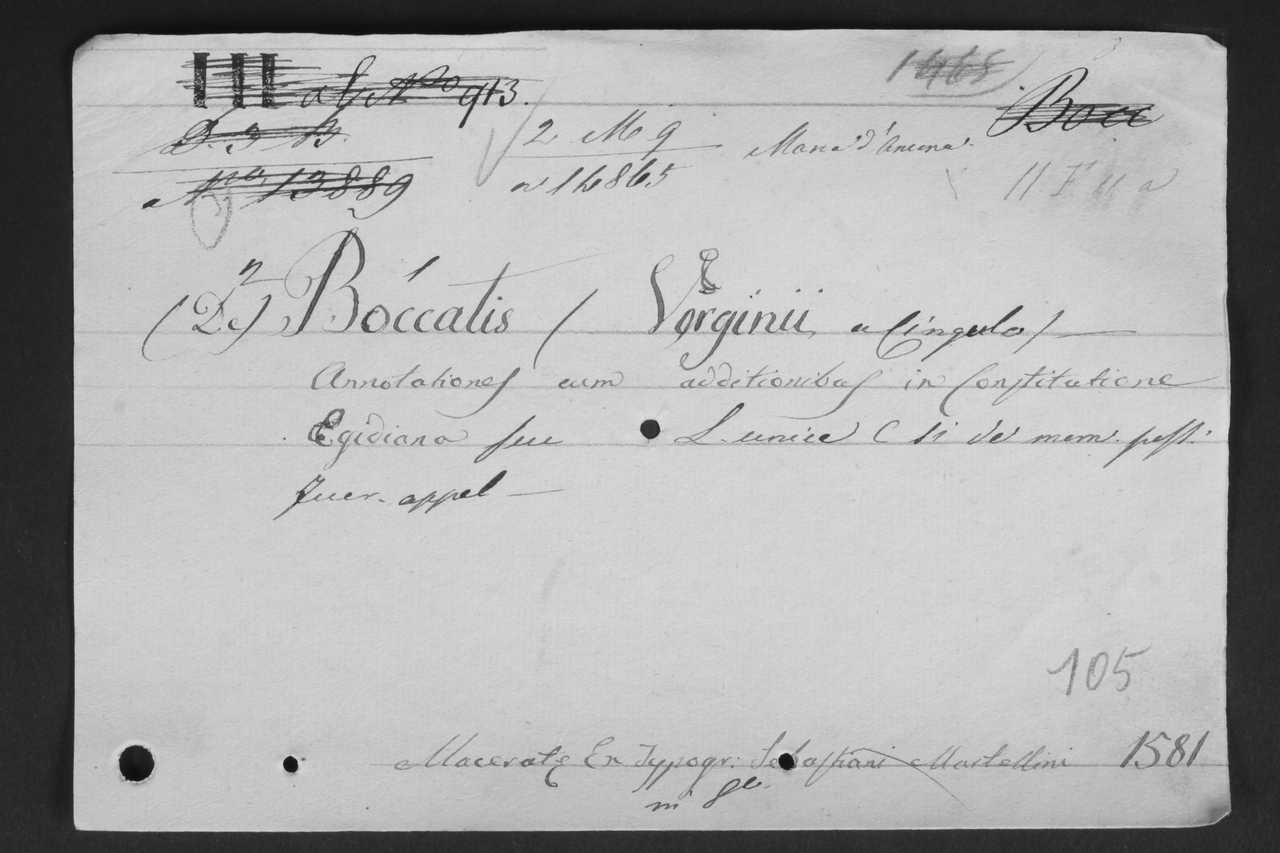 III a 4 No 913.
1465
Bocc
D. 3 B.
2 M 9
Marca d'Ancona
No 13889
n 14865
11 F 11 a
(D.n) Boccatis ( Virginii a Cingulo )
Annotationes cum additionibus in Constitutione
Egidiana seu L. unica C si de mom. poss.
fuer. appel
105
Maceratę Ex Typogr. Sebastiani Martellini 1581
in 8o.